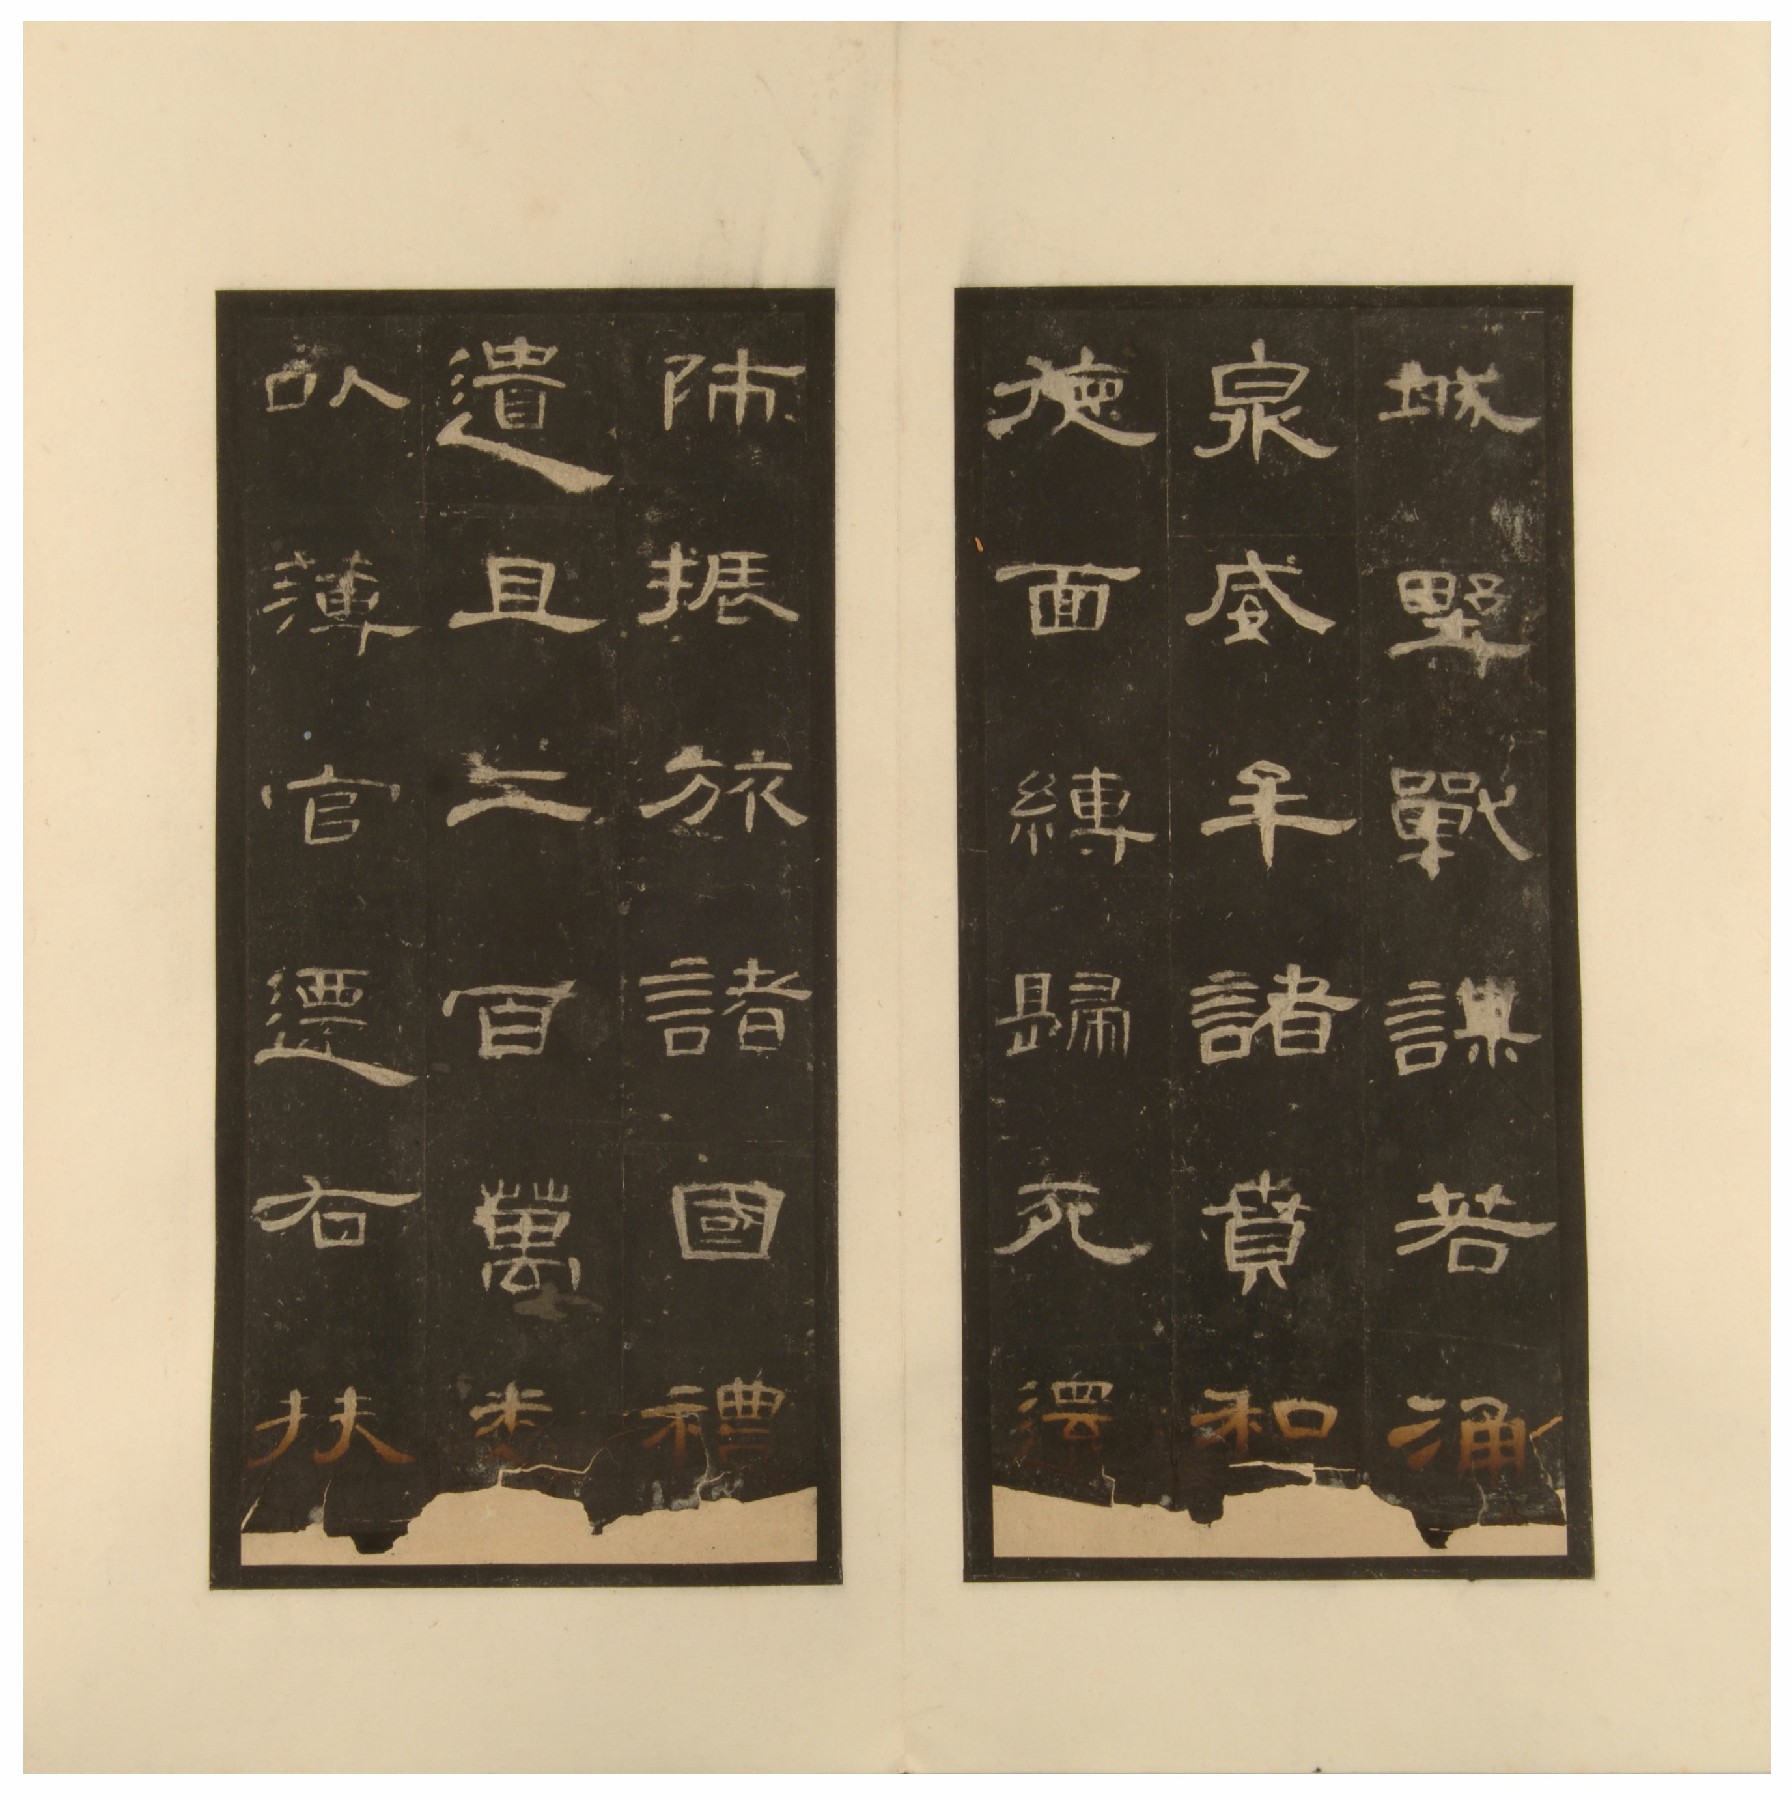 城墅戰謀若涌
泉威牟諸賁和
德面縛歸死還
師振旅諸國禮
遺且二百萬悉
以薄官遷右扶